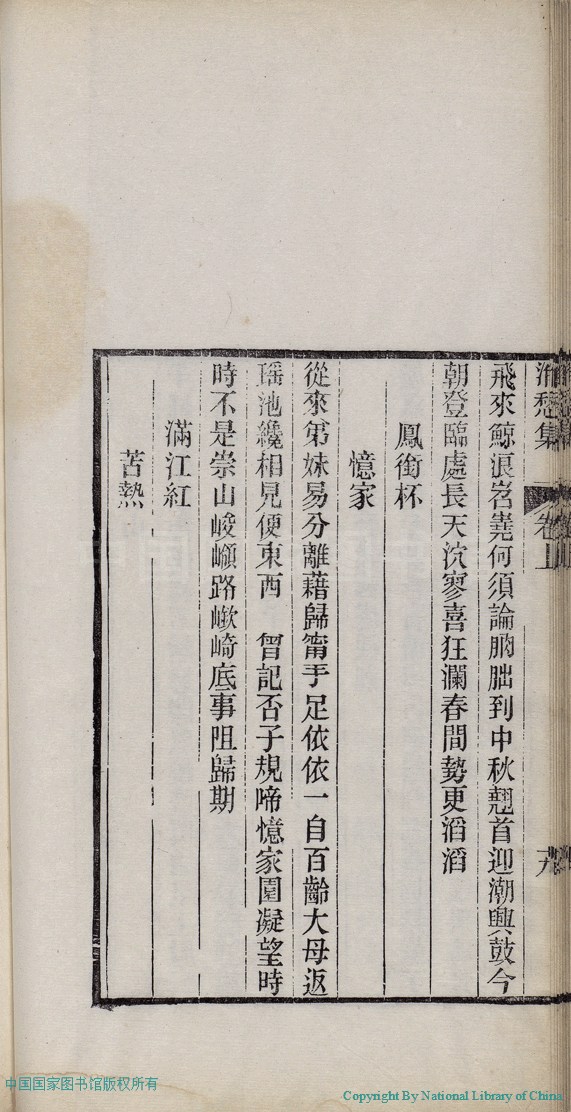 飛來鯨浪岧嶤何須論朒朏到中秋翹首迎潮興鼓今
朝登臨處長天泬寥喜狂瀾春間勢更滔滔
鳳銜杯
憶家
從來弟妹易分離藉歸甯手足依依一自百齡大母返
瑤池纔相見便東西　曾記否子規啼憶家園凝望時
時不是崇山峻嶺路嶔崎底事阻歸期
滿江紅
苦熱
中国国家图书馆版权所有
Copyright By National Library of China